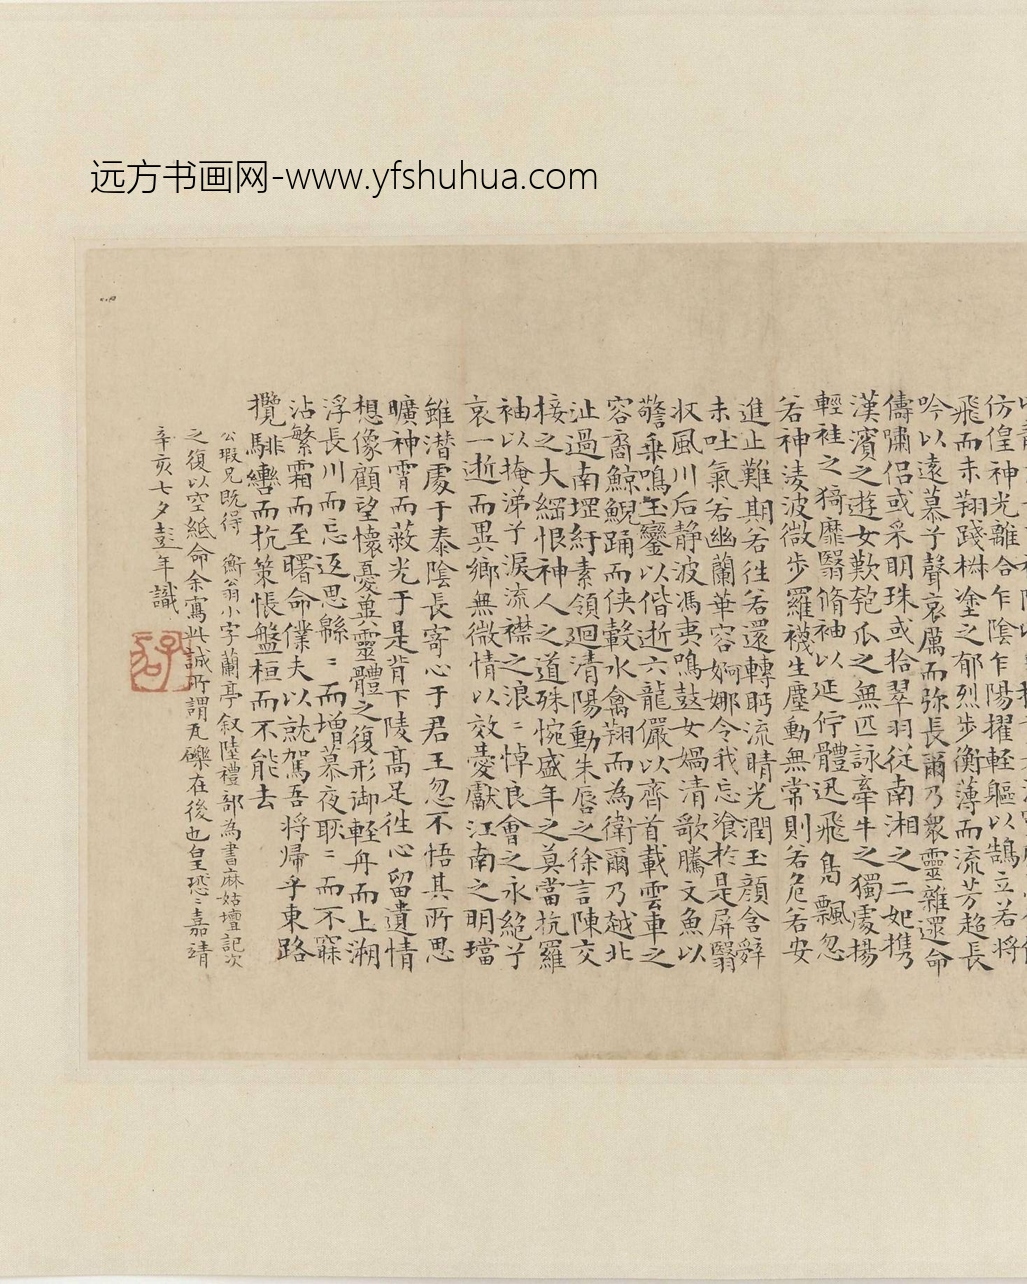 远方书画网-www.yfshuhua.com
仿偟神光離合乍陰乍陽擢輕軀以鵠立若將
飛而未翔踐椒塗之郁烈步衡薄而流芳超長
吟以遠慕兮聲哀厲而弥長爾乃衆靈雜遝命
儔嘯侶或采明珠或拾翠羽從南湘之二妃携
漢濱之遊女歎匏瓜之無匹詠牽牛之獨處揚
輕袿之猗靡翳脩袖以延佇體迅飛鳧飄忽
若神淩波微步羅襪生塵動無常則若危若安
進止難期若往若還轉眄流睛光潤玉顔含辭
未吐氣若幽蘭華容婀娜令我忘飡於是屏翳
收風川后静波馮夷鳴鼓女媧清歌騰文魚以
警乗鳴玉鑾以偕逝六龍儼以齊首載雲車之
容裔鯨鯢踊而俠轂水禽翔而為衛爾乃越北
沚過南堽紆素領廻清陽動朱唇之徐言陳交
接之大綱恨神人之道殊惋盛年之莫當抗羅
袖以掩涕兮淚流襟之浪〻悼良會之永絕兮
哀一逝而異鄉無微情以效愛獻江南之明璫
雖潛處于泰陰長寄心于君王忽不悟其所思
曠神霄而蔽光于是背下陵高足徃心留遺情
想像顧望懷憂兾靈體之復形御輕舟而上溯
浮長川而忘返思緜〻而增慕夜耿〻而不寐
沾繁霜而至曙命僕夫以就駕吾將帰乎東路
攬騑轡而抗策悵盤桓而不能去
公瑕兄既得 衡翁小字蘭亭叙陸禮部為書麻姑壇記次
之復以空紙命余寫此誠所謂瓦礫在後也皇恐〻嘉靖
辛亥七夕彭年識